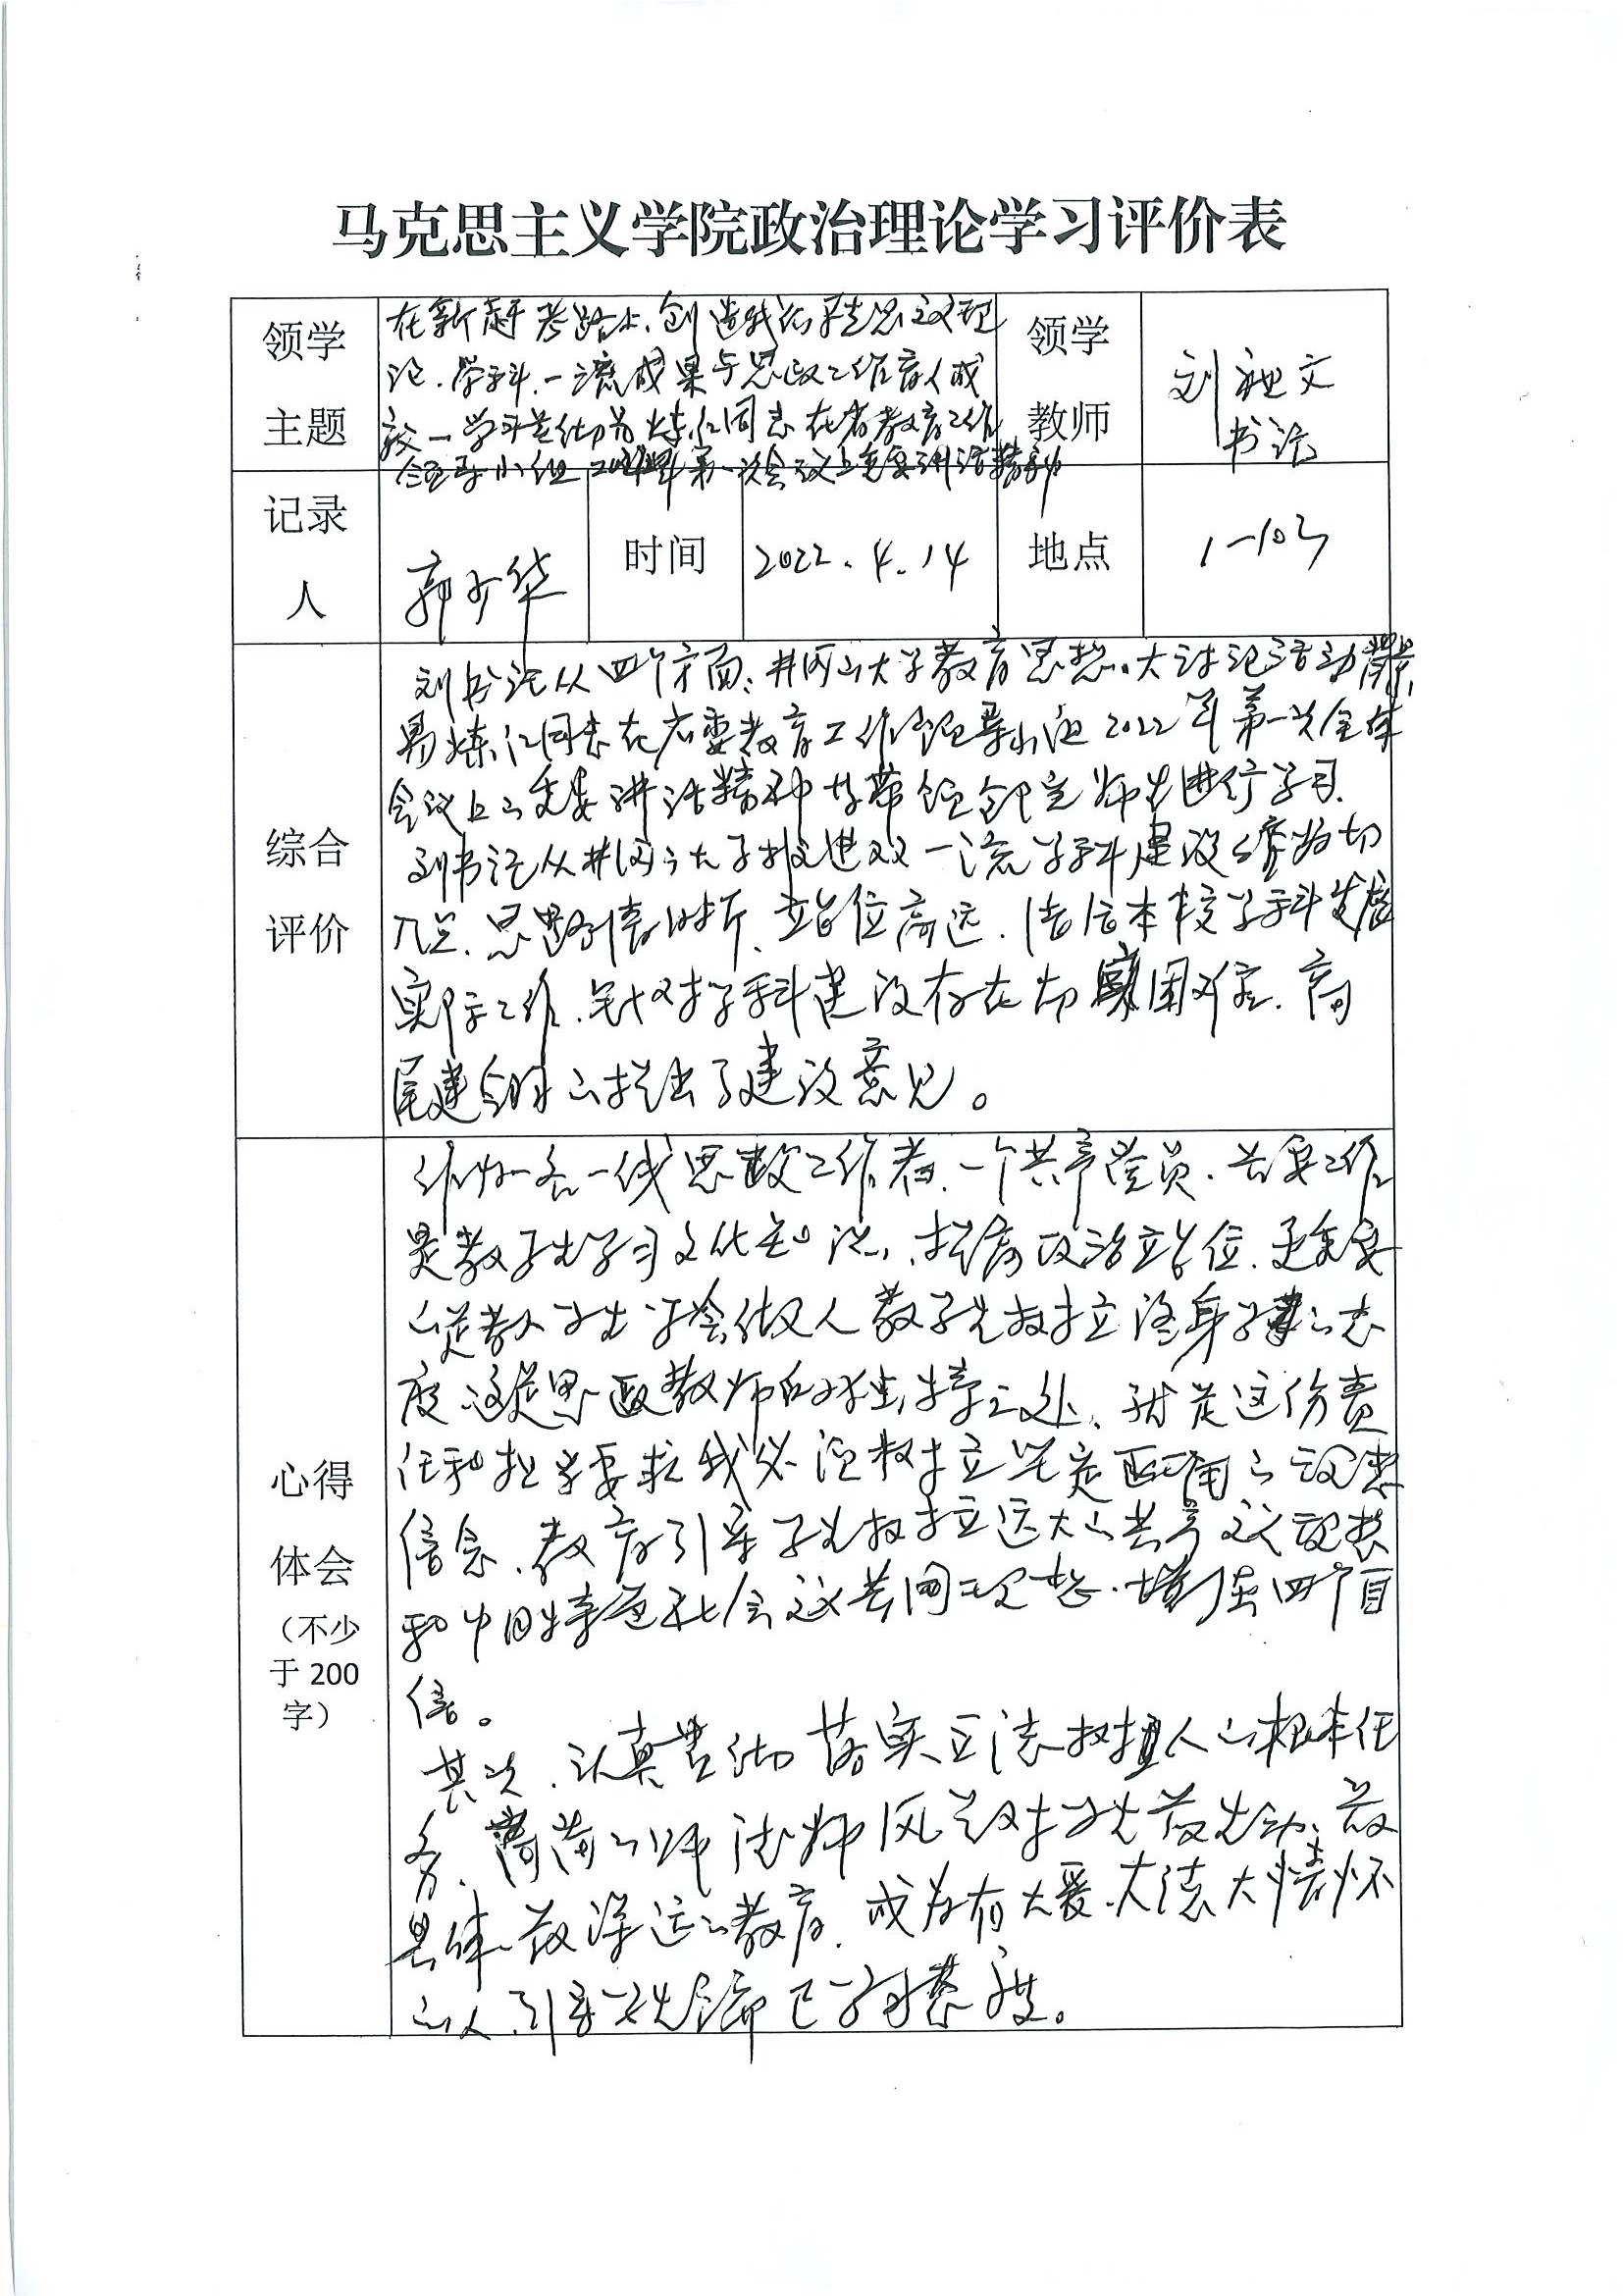 马克思主义学院政治理论学习评价表
领学
主题
在新赶考路上,创造我们马克思主义理
论、学科、一流成果与思政工作育人成
效—学习贯彻易炼红同志在省教育工作
领导小组2022年第一次会议上重要讲话精神
领学
教师
刘 文
书记
记录
人
郭少华
时间
2022.4.14
地点
1-103
综合
评价
刘书记从四个方面:井冈山大学教育思想大讨论活动
易炼红同志在省委教育工作领导小组2022年第一次全体
会议上的重要讲话精神 带领全院师生进行学习.
刘书记从井冈山大学推进双一流学科建设 切
入点、思路清晰、站位高远、结合本校学科发展
实际工作、针对学科建设存在切实困难、高
屋建瓴的提出了建设意见。
心得
体会
(不少
于200
字)
作为一名一线思政工作者、一个共产党员、首要工作
是教学生学习文化知识、提高政治站位、更重要
的是教学生学会做人教学生树立终身学习的态
度这是思政教师的独特之处、就是这份责
任和担当要求我必须树立坚定正确的理想
信念、教育引导学生树立远大的共产主义理想
和中国特色社会主义共同理想、增强四个自
信。
其次、认真贯彻落实立德树人的根本任
务、高尚的师德师风是对学生最生动、最
具体、最深远的教育、成为有大爱大德大情怀
的人、引导学生 学习态度。